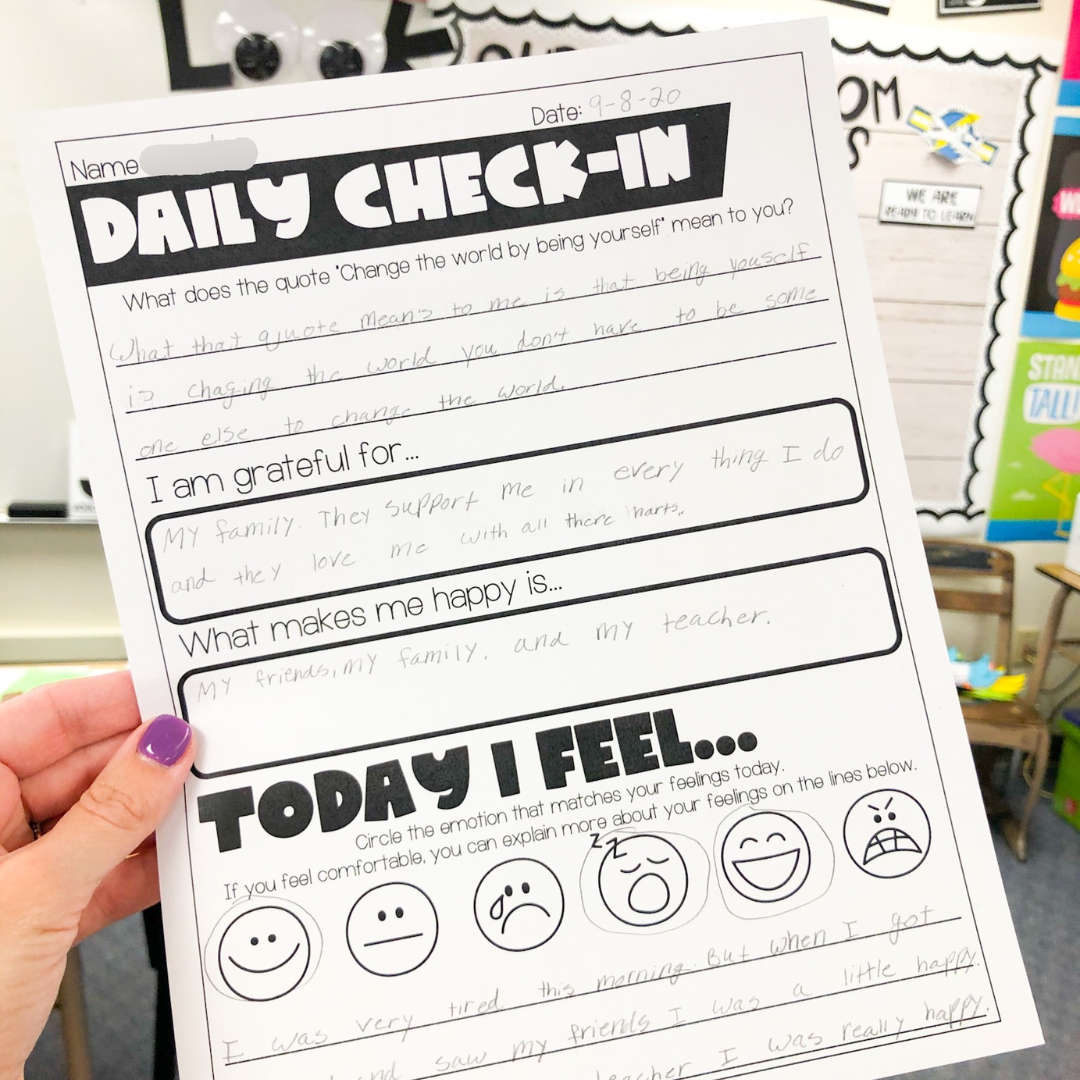 Name
Date: 9-8-20
DAILY CHECK-IN
What does the quote "Change the world by being yourself" mean to you?
What that qjuote mean's to me is that being youself
is chaging the world you don't have to be some
one else to change the world.
I am grateful for...
My family. They support me in every thing I do
and they love me with all there harts.
What makes me happy is...
My friends, my family, and my teacher.
TODAY I FEEL...
Circle the emotion that matches your feelings today.
If you feel comfortable, you can explain more about your feelings on the lines below.
zzz
I was very tired this morning. But when I got
and saw my friends I was a little happy.
teacher I was really happy.
OUR
OM
WE ARE
READY TO LEARN
STAN
TALL!